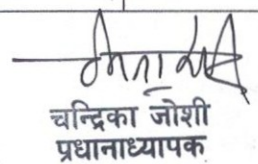 चन्द्रिका जोशी
प्रधानाध्यापक